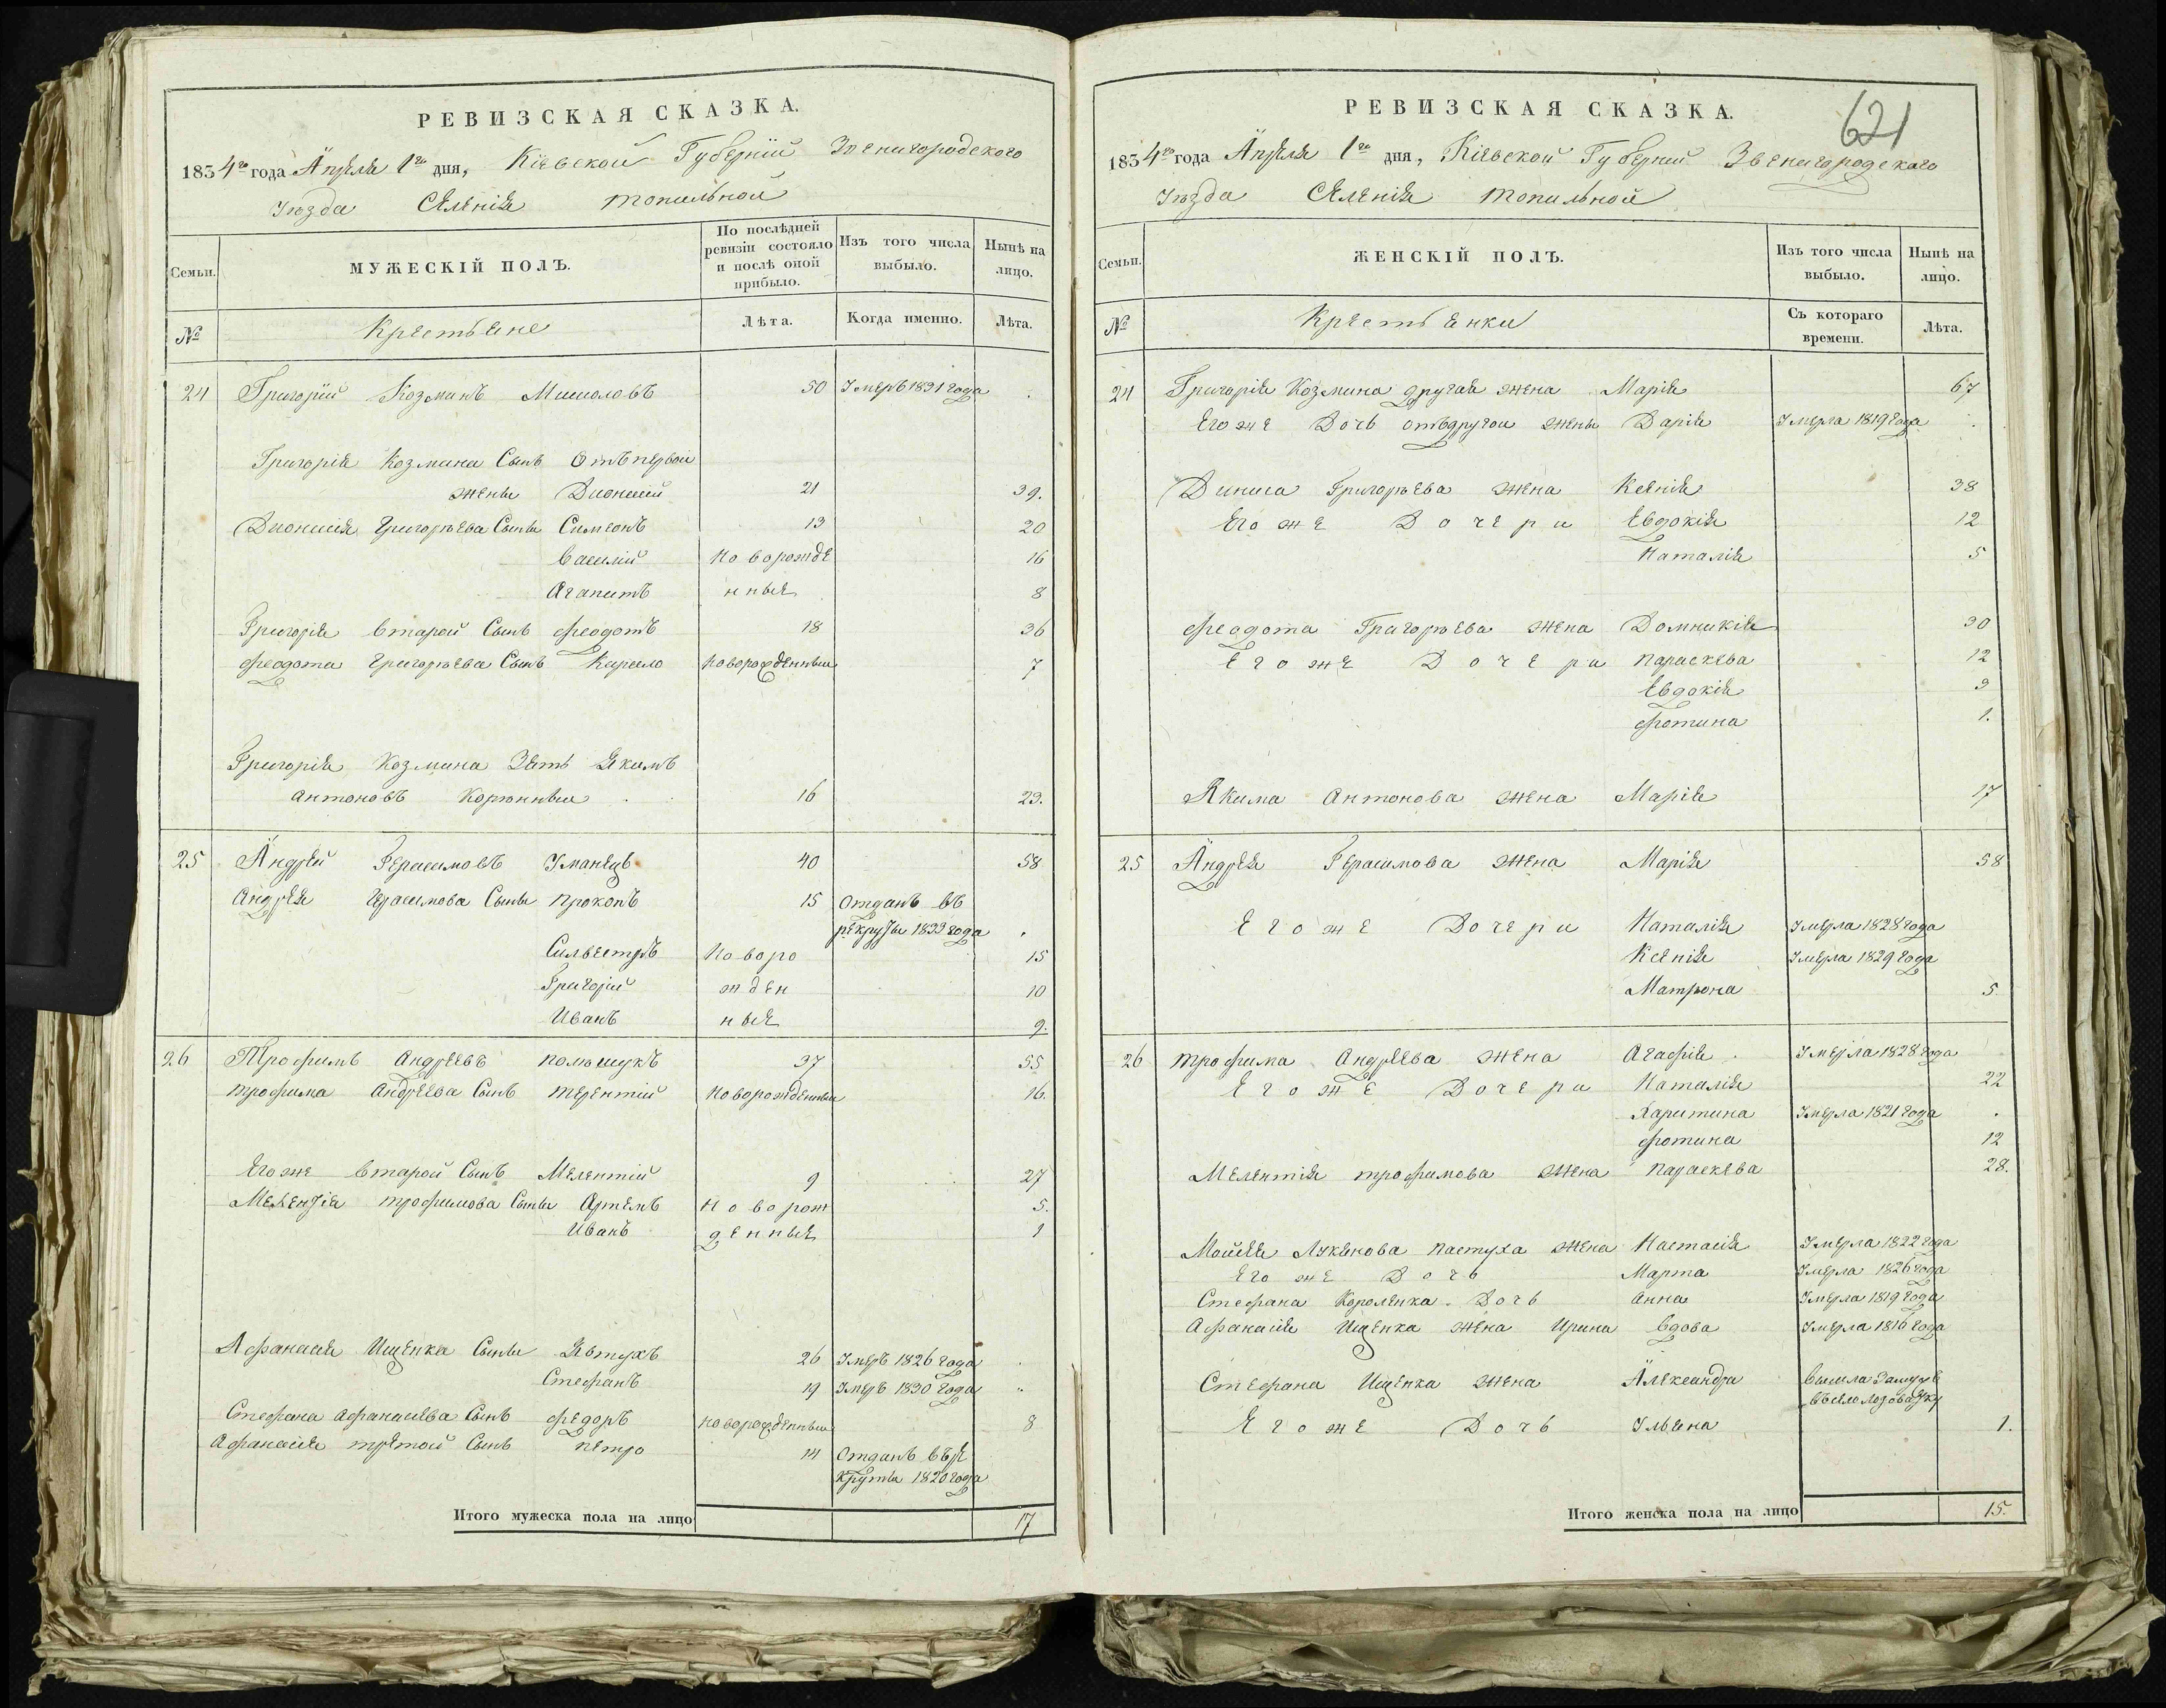 РЕВИЗСКАЯ СКАЗКА.
1834го года Апреля 1го дня, Кіевской Губерніи Звенигородского
Уезда Селенія Топильной
Семьи.
МУЖЕСКІЙ ПОЛЪ.
По послѣдней ревизіи состояло и послѣ оной прибыло.
Изъ того числа выбыло.
Нынѣ на лицо.
№
Крестьяне
Лѣта.
Когда именно.
Лѣта.
24 Григорій Козминъ 50 Умеръ 1831 года
Григорія Козмина Сынъ Отъ первой
жены Дионисій 21 39.
Дионисія Григорьева Сыны Симеонъ 13 20
Василій Новорожде 16
Агапитъ нные 8
Григорія второй Сынъ Феодотъ 18 36
Феодота Григорьева Сынъ Кирило новорожденный 7
Григорія Козмина Зять Якимъ
Антоновъ 16 23.
25 Андрей Герасимовъ Уманецъ 40 58
Андрея Герасимова Сыны Прокопъ 15 Отданъ въ
рекруты 1833 года
Сильвестръ Новоро 15
Григорій жден 10
Иванъ ные 9.
26 Трофимъ Андреевъ Полищукъ 37 55
Трофима Андреева Сынъ Терентій Новорожденный 16.
Его же второй Сынъ Мелентій 9 27
Мелентія Трофимова Сыны Артемъ Новорож 5.
Иванъ денные 1
Афанасія Ищенка Сыны Явтухъ 26 Умеръ 1826 года
Стефанъ 19 Умеръ 1830 года
Стефана Афанасьева Сынъ Федоръ новорожденный 8
Афанасія третой Сынъ Петро 14 Отданъ въ ре
круты 1820 года
Итого мужеска пола на лицо 17
621
РЕВИЗСКАЯ СКАЗКА.
1834го года Апреля 1го дня, Кіевской Губерніи Звенигородского
Уезда Селенія Топильной
Семьи.
ЖЕНСКІЙ ПОЛЪ.
Изъ того числа выбыло.
Нынѣ на лицо.
№
Крестьянки
Съ котораго времени.
Лѣта.
24 Григорія Козмина другая жена Марія 67
Его же Дочь отъ другой жены Дарія Умерла 1819 года
Диниса Григорьева жена Ксенія 38
Его же Дочери Евдокія 12
Наталія 5
Феодота Григорьева жена Домникія 30
Его же Дочери Параскева 12
Евдокія 3
Фотина 1.
Якима Антонова жена Марія 17
25 Андрея Герасимова жена Марія 58
Его же Дочери Наталія Умерла 1828 года
Ксенія Умерла 1829 года
Матрона 5
26 Трофима Андреева жена Агафія Умерла 1828 года
Его же Дочери Наталія 22
Харитина Умерла 1821 года
Фотина 12
Мелентія Трофимова жена Параскева 28.
Мойсея Лукянова Пастуха жена Настасія Умерла 1822 года
Его же Дочь Марта Умерла 1826 года
Стефана Короленка Дочь Анна Умерла 1819 года
Афанасія Ищенка жена Ирина вдова Умерла 1816 года
Стефана Ищенка жена Александра Вышла Замужъ
въ село Лозоватку
Его же Дочь Ульяна 1.
Итого женска пола на лицо 15.